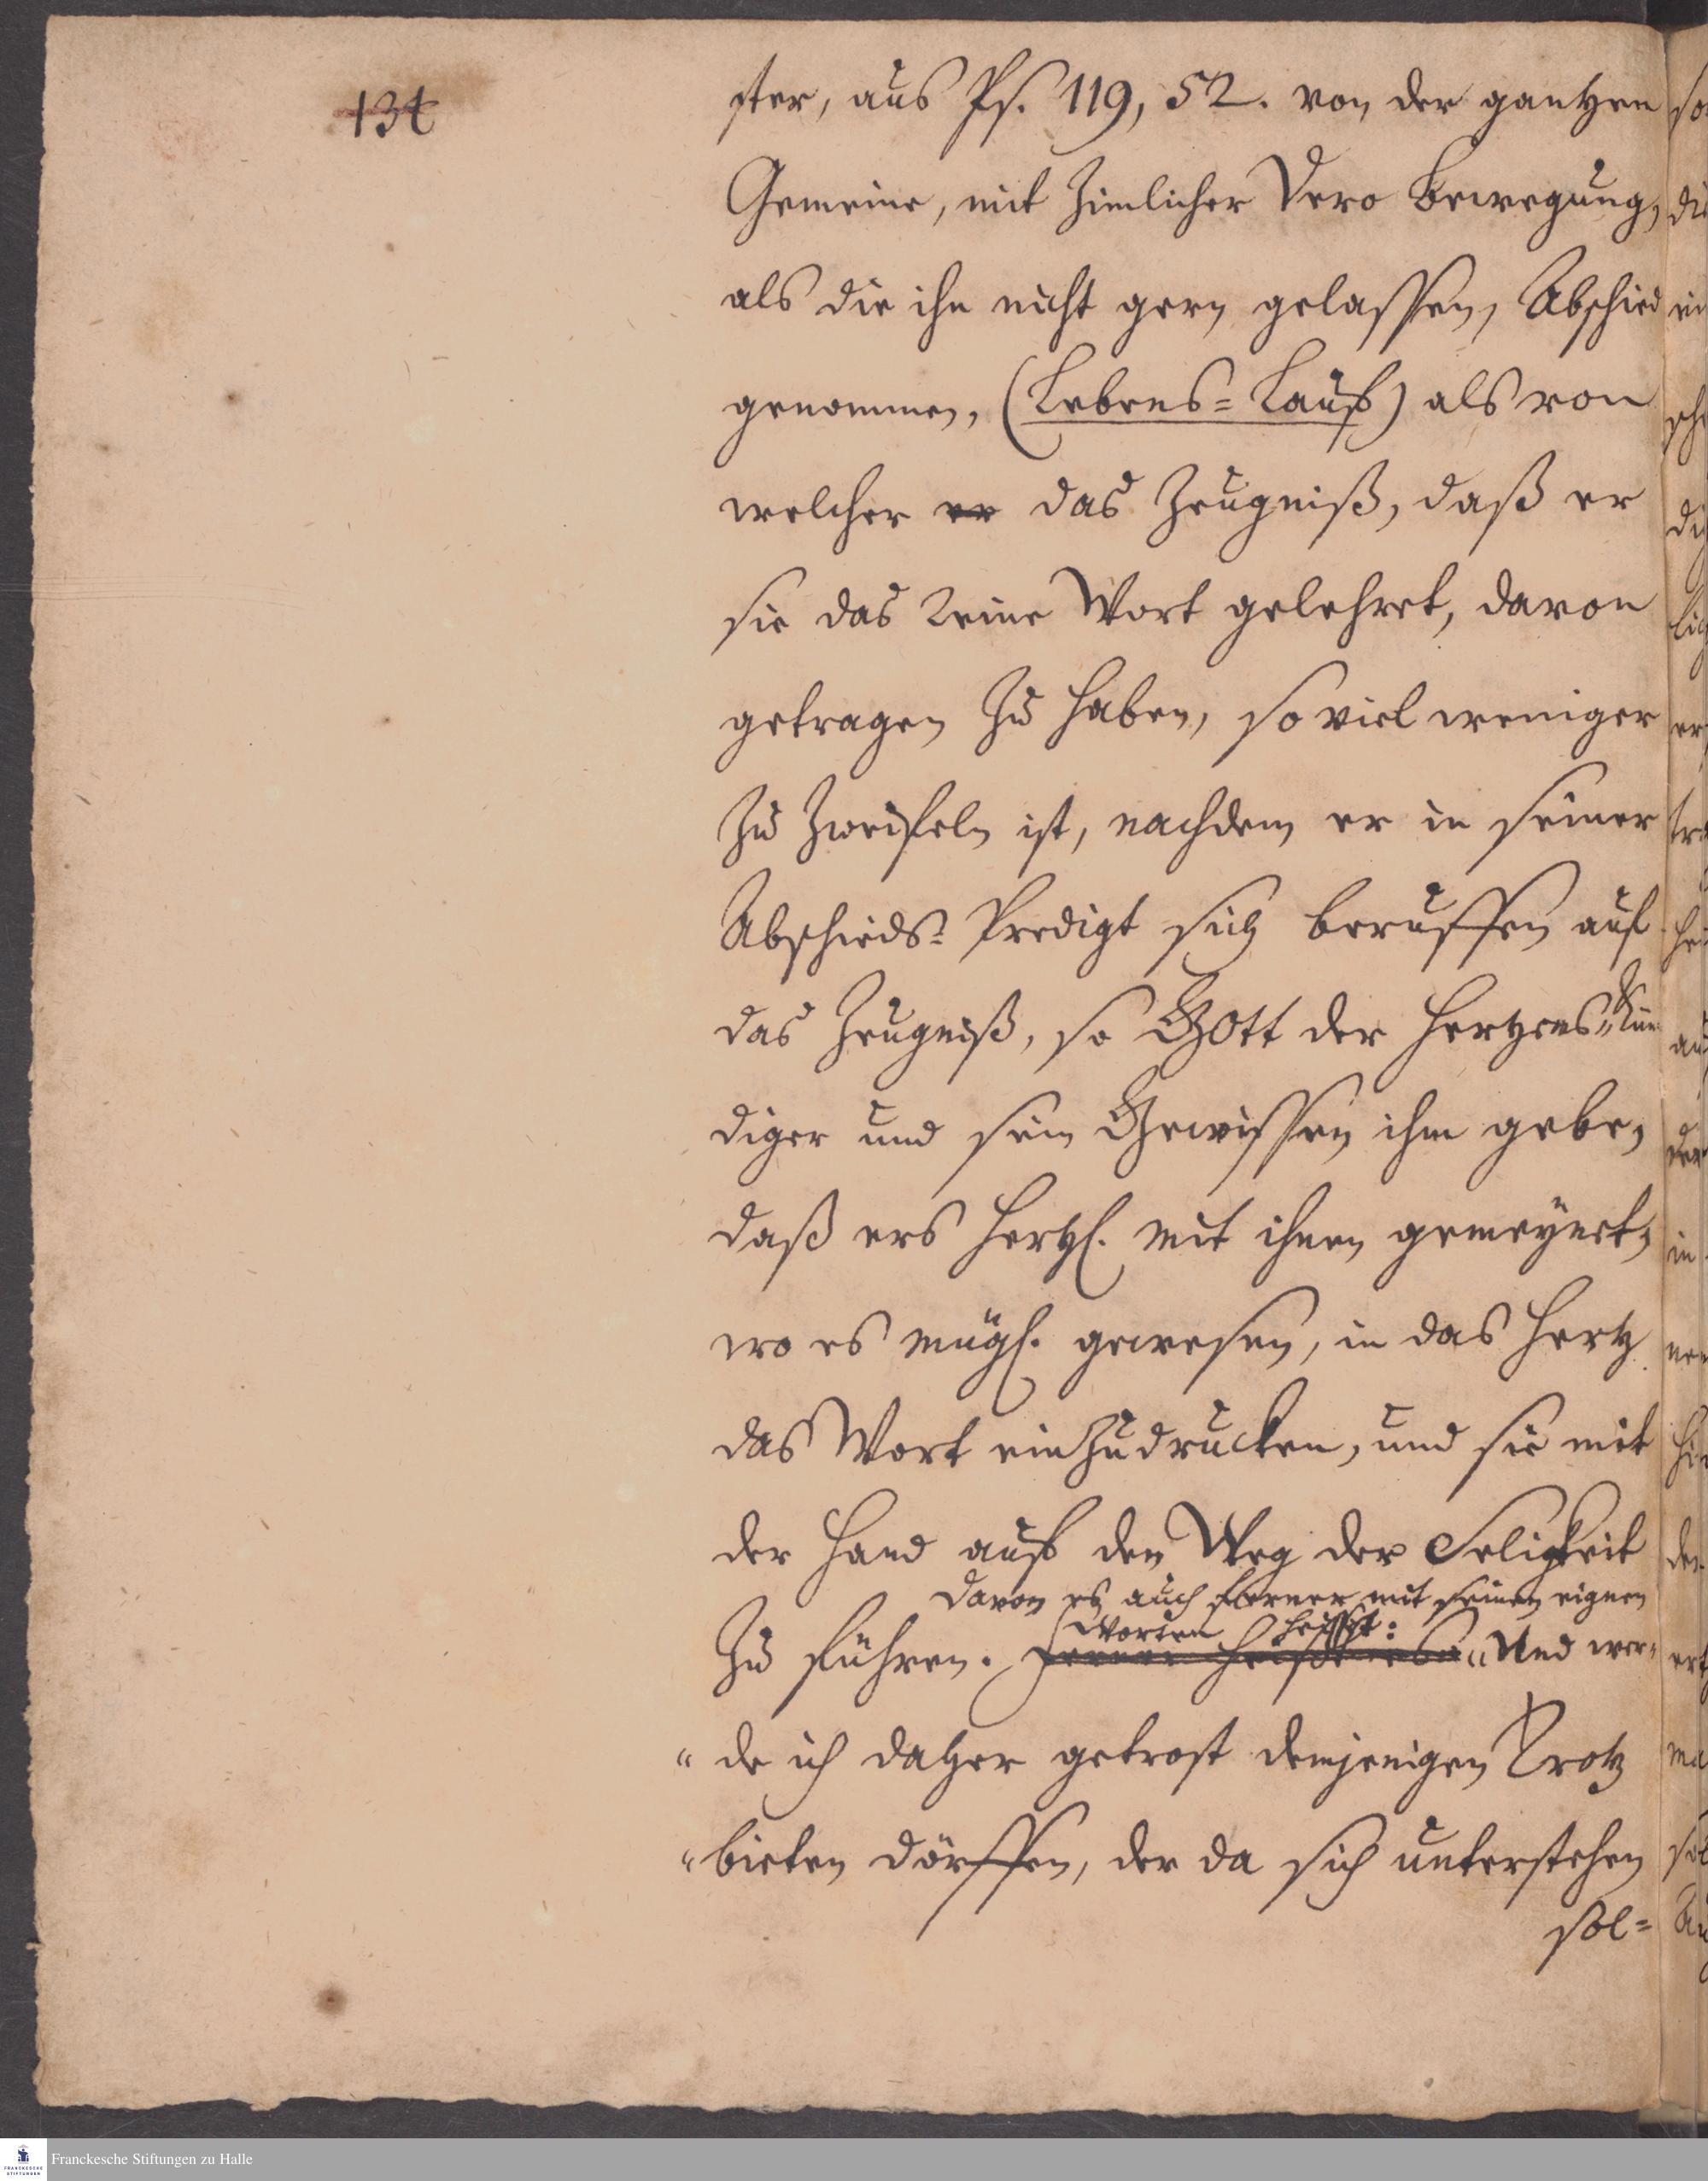 134
ster, aus Ps. 119, 52. von der gantzen
Gemeine, mit zimlicher Dero Bewegung,
als die ihn nicht gern gelassen, Abschied
genommen, (Lebens-Lauff) als von
welcher er das Zeugniß, daß er
sie das Reine Wort gelehret, davon
getragen zu haben, so viel weniger
zu zweifeln ist, nachdem er in seiner
Abschieds-Predigt sich beruffen auf
das Zeugniß, so Gott der Hertzens-Kün
diger und sein Gewissen ihm gebe,
daß ers hertzl. mit ihnen gemeynet,
wo es mügl. gewesen, in das Hertz
das Wort einzudrucken, und sie mit
der Hand auff den Weg der Seligkeit
davon es auch ferner mit seinen eignen
Worten heisset:
zu führen. ferner heisset es „ Und wer-
„ de ich daher getrost demjenigen Trotz
„ bieten dörffen, der da sich unterstehen
sol-
Franckesche Stiftungen zu Halle